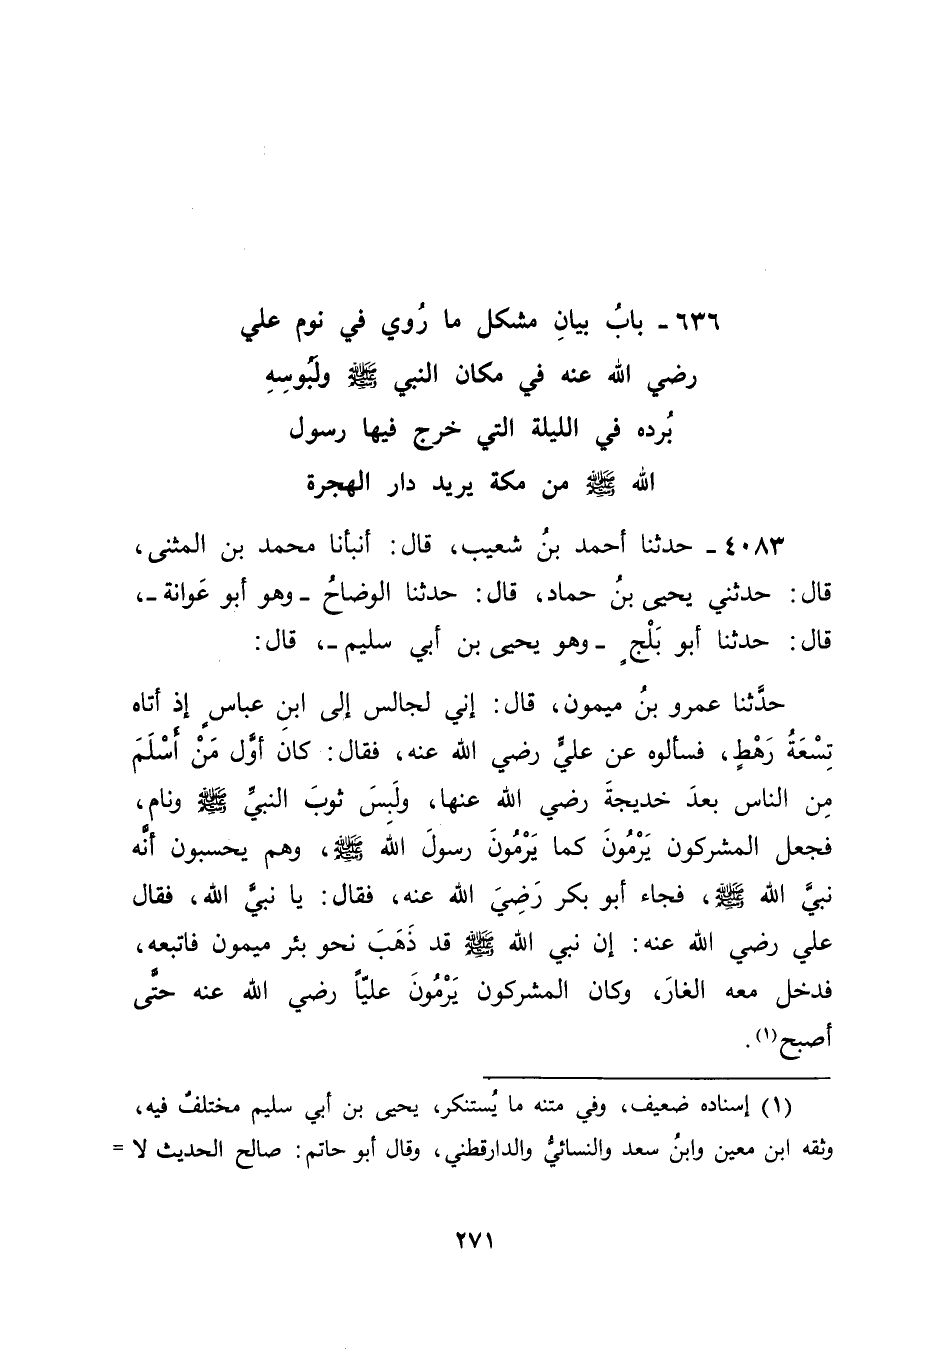 ٦٣٦ ـ بابُ بيانِ مشكل ما رُوي في نوم علي
رضي الله عنه في مكان النبي ﷺ ولَبُوسِهِ
بُرده في الليلة التي خرج فيها رسول
الله ﷺ من مكة يريد دار الهجرة
٤٠٨٣ ـ حدثنا أحمد بنُ شعيب، قال: أنبأنا محمد بن المثنى،
قال: حدثني يحيى بنُ حماد، قال: حدثنا الوضاحُ ـ وهو أبو عَوانة ـ،
قال: حدثنا أبو بَلْجٍ ـ وهو يحيى بن أبي سليم ـ، قال:
حدَّثنا عمرو بنُ ميمون، قال: إني لجالس إلى ابنِ عباسٍ إذ أتاه
تِسْعَةُ رَهْطٍ، فسألوه عن عليٍّ رضي الله عنه، فقال: كان أوَّل مَنْ أَسْلَمَ
مِن الناس بعدَ خديجةَ رضي الله عنها، ولَبِسَ ثوبَ النبيِّ ﷺ ونام،
فجعل المشركون يَرْمُونَ كما يَرْمُونَ رسولَ الله ﷺ، وهم يحسبون أنَّه
نبيَّ الله ﷺ، فجاء أبو بكر رَضِيَ الله عنه، فقال: يا نبيَّ الله، فقال
علي رضي الله عنه: إن نبي الله ﷺ قد ذَهَبَ نحو بئر ميمون فاتبعه،
فدخل معه الغارَ، وكان المشركون يَرْمُونَ عليّاً رضي الله عنه حتَّى
أصبح(١).
(١) إسناده ضعيف، وفي متنه ما يُستنكر، يحيى بن أبي سليم مختلفٌ فيه،
وثقه ابن معين وابنُ سعد والنسائيُّ والدارقطني، وقال أبو حاتم: صالح الحديث لا =
٢٧١